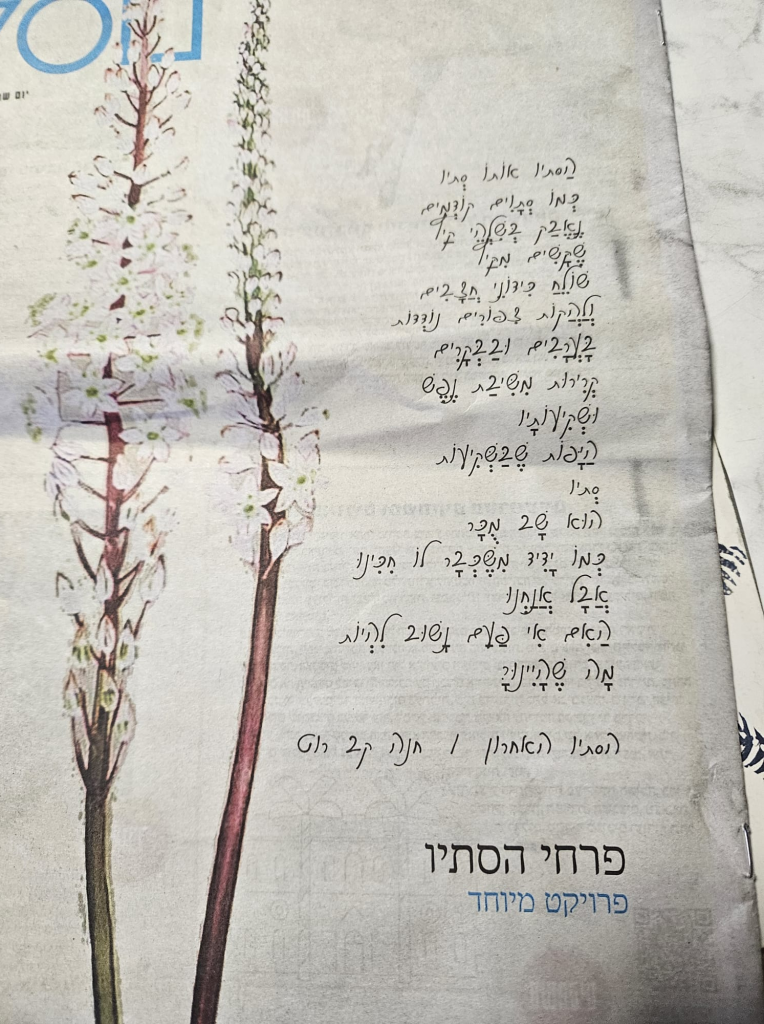 יום
הַסתיו אותוֹ סְתיו
כְּמוֹ סְתָוִים קוֹדְמִים
נֶאֱבַק בְּשִׁלְהֵי קַיִץ
שֶׁקָּשִׁים מִקַּיִץ
שׁוֹלֵחַ כִּידוֹנֵי חֲצָבִים
וְלַהֲקוֹת צִפּוֹרִים נוֹדְדוֹת
בָּעֲרָבִים וּבַבְּקָרִים
קְרִירוּת מְשִׁיבַת נֶפֶשׁ
וּשְׁקִיעוֹתָיו
הַיָּפוֹת שֶׁבַּשְּׁקִיעוֹת
סְתיו
הוּא שָׁב מֻכָּר
כְּמוֹ יָדִיד מִשֶּׁכְּבָר לוֹ חִכִּינוּ
אֲבָל אֲנַחְנוּ
הַאִם אִי פַּעַם נָשׁוּב לִהְיוֹת
מָה שֶׁהָיִינוּ?
הסתיו האחרון / חנה קב רוט
פרחי הסתיו
פרויקט מיוחד